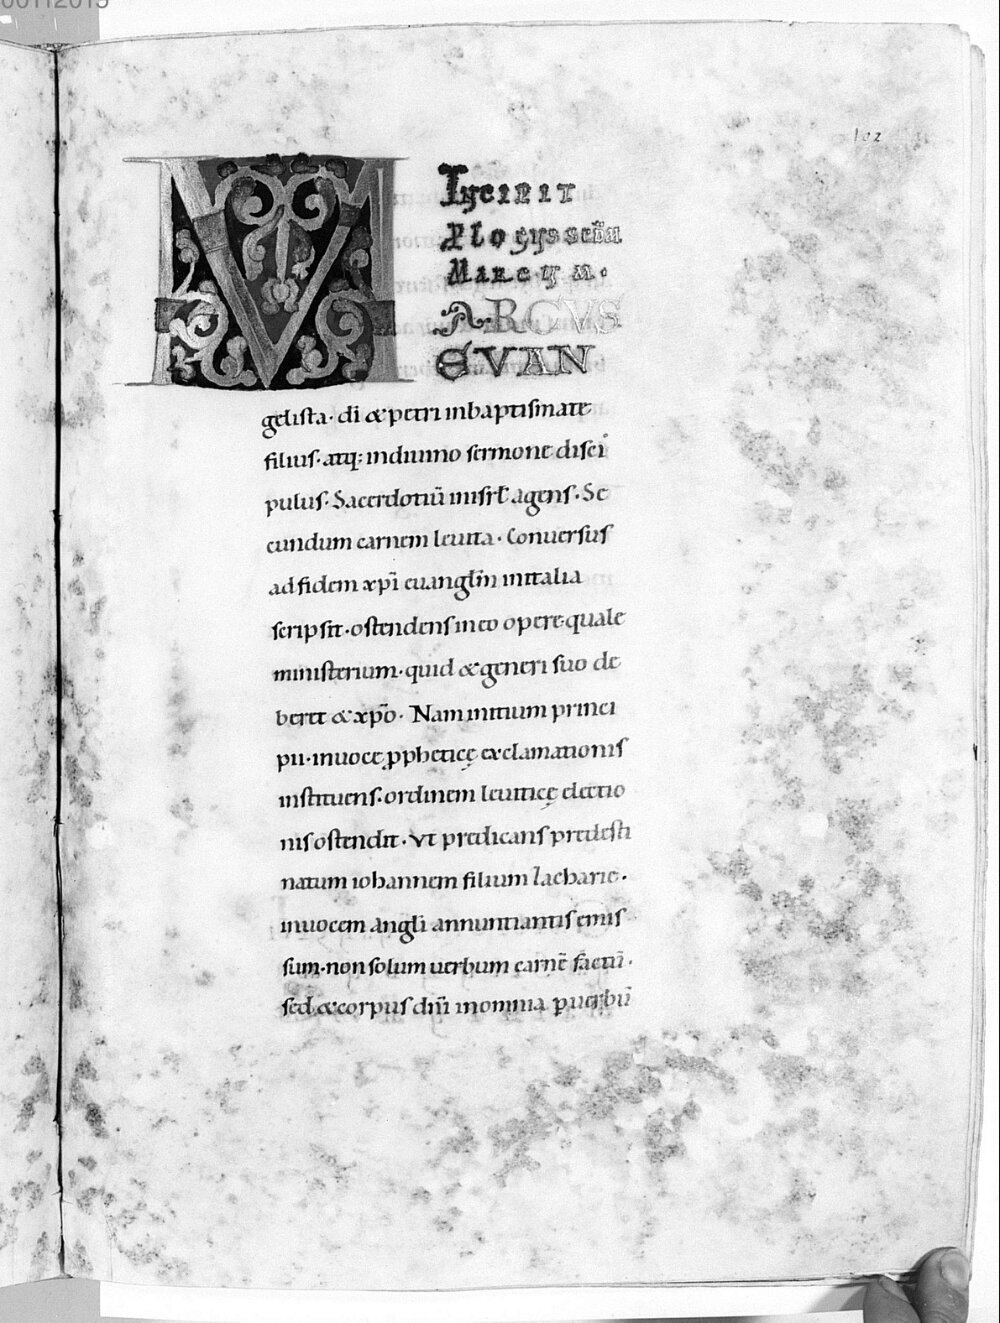 00112015
102
M
Incipit
Plogus scdm
Marcum.
ARCVS
EVAN
gelista· dī & petri inbaptismate
filius· atq; indiuino sermone disci
pulus· Sacerdotiū inisrł agens· Se
cundum carnem leuita· Conuersus
ad fidem xp̄i euangliū initalia
scripsit· ostendens ineo opere quale
ministerium· quid & generi suo de
beret & xp̄o· Nam initium princi
pii· inuoce ꝓphetice exclamationis
instituens· ordinem leuiticę electio
nis ostendit· Vt predicans predesti
natum iohannem filium zacharie·
inuocem angli annuntiantis emis
sum· non solum uerbum carnē factū·
sed & corpus dn̄i inomnia ꝑ uerbū